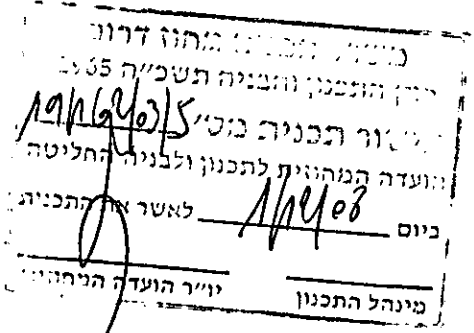 משרד הפנים מחוז דרום
חוק התכנון והבניה תשכ"ה 1965
אישור תכנית מס'
הועדה המחוזית לתכנון ולבניה החליטה
ביום לאשר את התכנית
מינהל התכנון יו"ר הועדה המחוזית